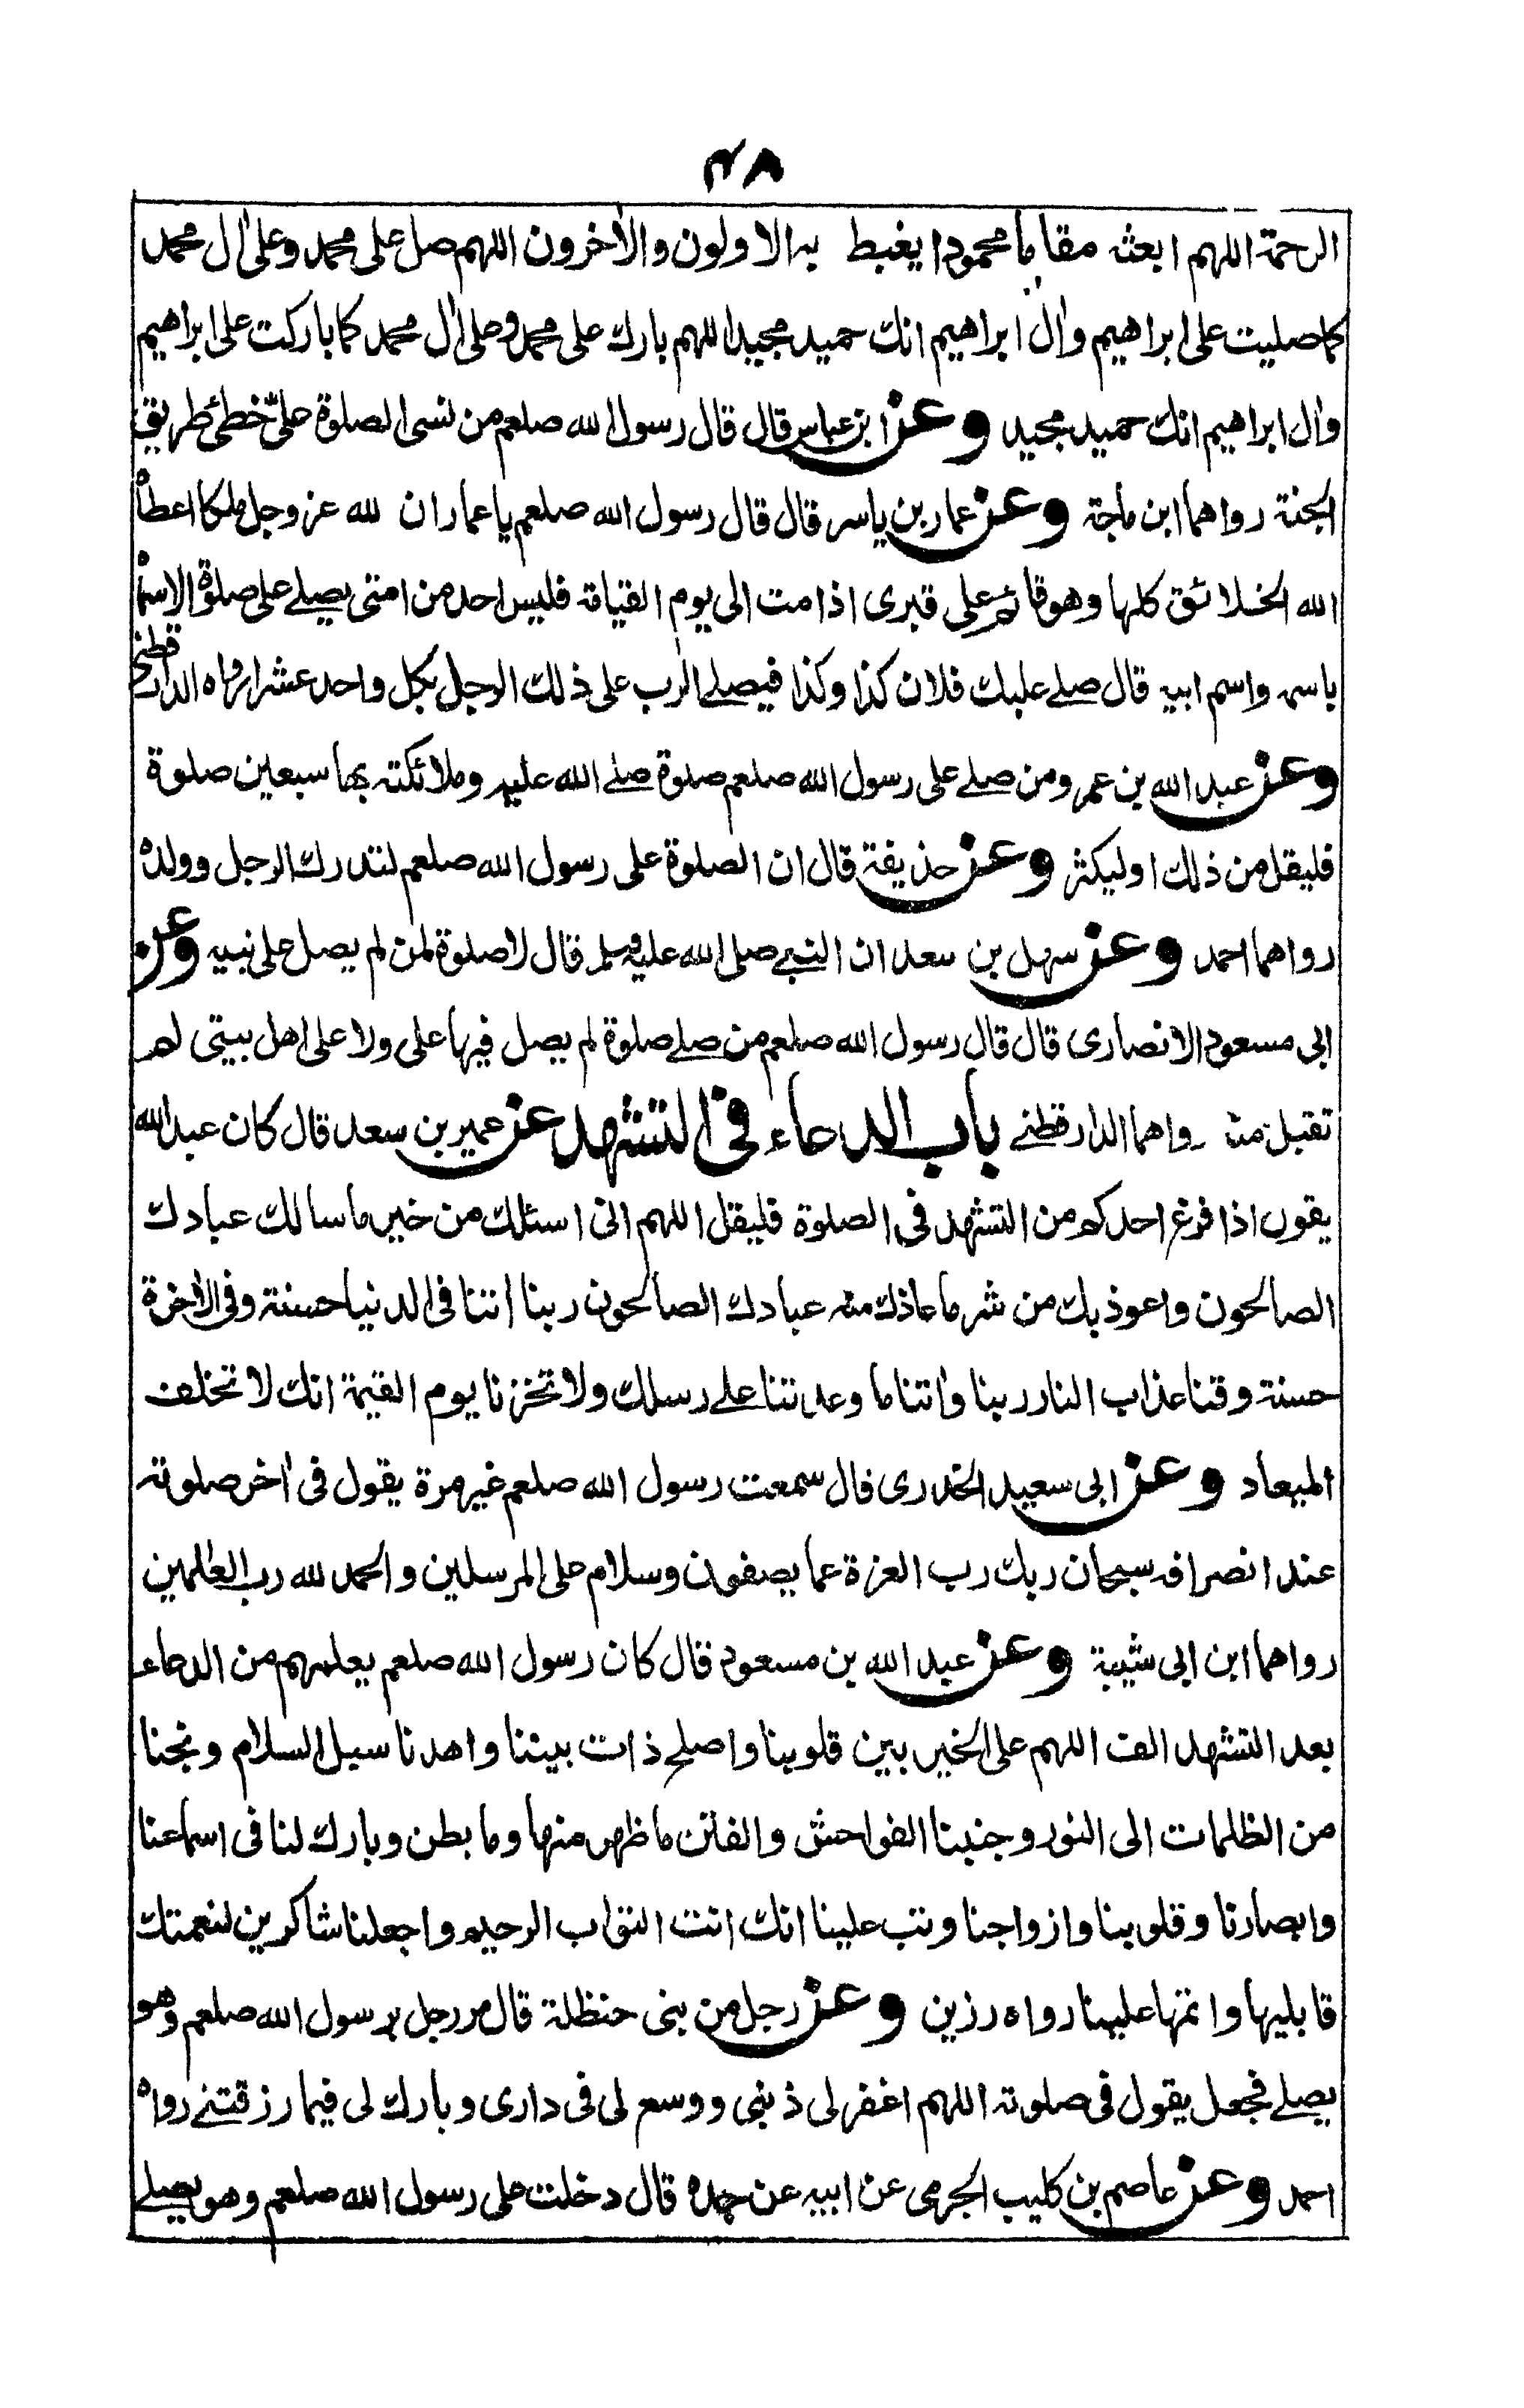 ٤٨
الرحمة اللهم ابعثه مقاما محمودا يغبط به الاولون والاٰخرون اللهم صل على محمد وعلى اٰل محمد
كما صليت على ابراهيم واٰل ابراهيم انك حميد مجيد اللهم بارك على محمد وعلى اٰل محمد كما باركت على ابراهيم
واٰل ابراهيم انك حميد مجيد وعن ابن عباس قال قال رسول الله صلعم من نسى الصلوة علىّ خطئ طريق
الجنة رواهما ابن ماجة وعن عمار بن ياسر قال قال رسول الله صلعم يا عمار ان لله عز وجل ملكا اعطاه
الله الخلائق كلها وهو قائم على قبرى اذا مت الى يوم القيامة فليس احد من امتى يصلے على صلوة الا سماه
باسمه واسم ابيه قال صلے عليك فلان كذا وكذا فيصلے الرب على ذلك الرجل بكل واحد عشرا رواه الدارقطنى
وعن عبد الله بن عمر ومن صلے على رسول الله صلعم صلوة صلے الله عليه وملائكته بها سبعين صلوة
فليقل من ذلك او ليكثر وعن حذيفة قال ان الصلوة على رسول الله صلعم لتدرك الرجل وولده
رواهما احمد وعن سهل بن سعد ان النبے صلى الله عليه وسلم قال لا صلوة لمن لم يصل على نبيه وعن
ابى مسعود الانصارى قال قال رسول الله صلعم من صلے صلوة لم يصل فيها على ولا على اهل بيتى لم
تقبل منه رواهما الدارقطنے باب الدعاء فى التشهد عن عمير بن سعد قال كان عبد الله
يقول اذا فرغ احدكم من التشهد فى الصلوة فليقل اللهم انى اسئلك من خير ما سالك عبادك
الصالحون واعوذ بك من شر ما عاذك منه عبادك الصالحون ربنا اٰتنا فى الدنيا حسنة وفى الاٰخرة
حسنة وقنا عذاب النار ربنا واٰتنا ما وعدتنا علے رسلك ولا تخزنا يوم القيمة انك لا تخلف
الميعاد وعن ابى سعيد الخدرى قال سمعت رسول الله صلعم غير مرة يقول فى اٰخر صلوته
عند انصرافه سبحان ربك رب العزة عما يصفون وسلام على المرسلين والحمد لله رب العٰلمين
رواهما ابن ابى شيبة وعن عبد الله بن مسعود قال كان رسول الله صلعم يعلمهم من الدعاء
بعد التشهد الف اللهم على الخير بين قلوبنا واصلح ذات بيننا واهدنا سبل السلام ونجنا
من الظلمات الى النور وجنبنا الفواحش والفتن ما ظهر منها وما بطن وبارك لنا فى اسماعنا
وابصارنا وقلوبنا وازواجنا وتب علينا انك انت التواب الرحيم واجعلنا شاكرين لنعمتك
قابليها واتمها علينا رواه رزين وعن رجل من بنى حنظلة قال مر رجل برسول الله صلعم وهو
يصلے فجعل يقول فى صلوته اللهم اغفر لى ذنبى ووسع لى فى دارى وبارك لى فيما رزقتنے رواه
احمد وعن عاصم بن كليب الجرمى عن ابيه عن جده قال دخلت على رسول الله صلعم وهو يصلے